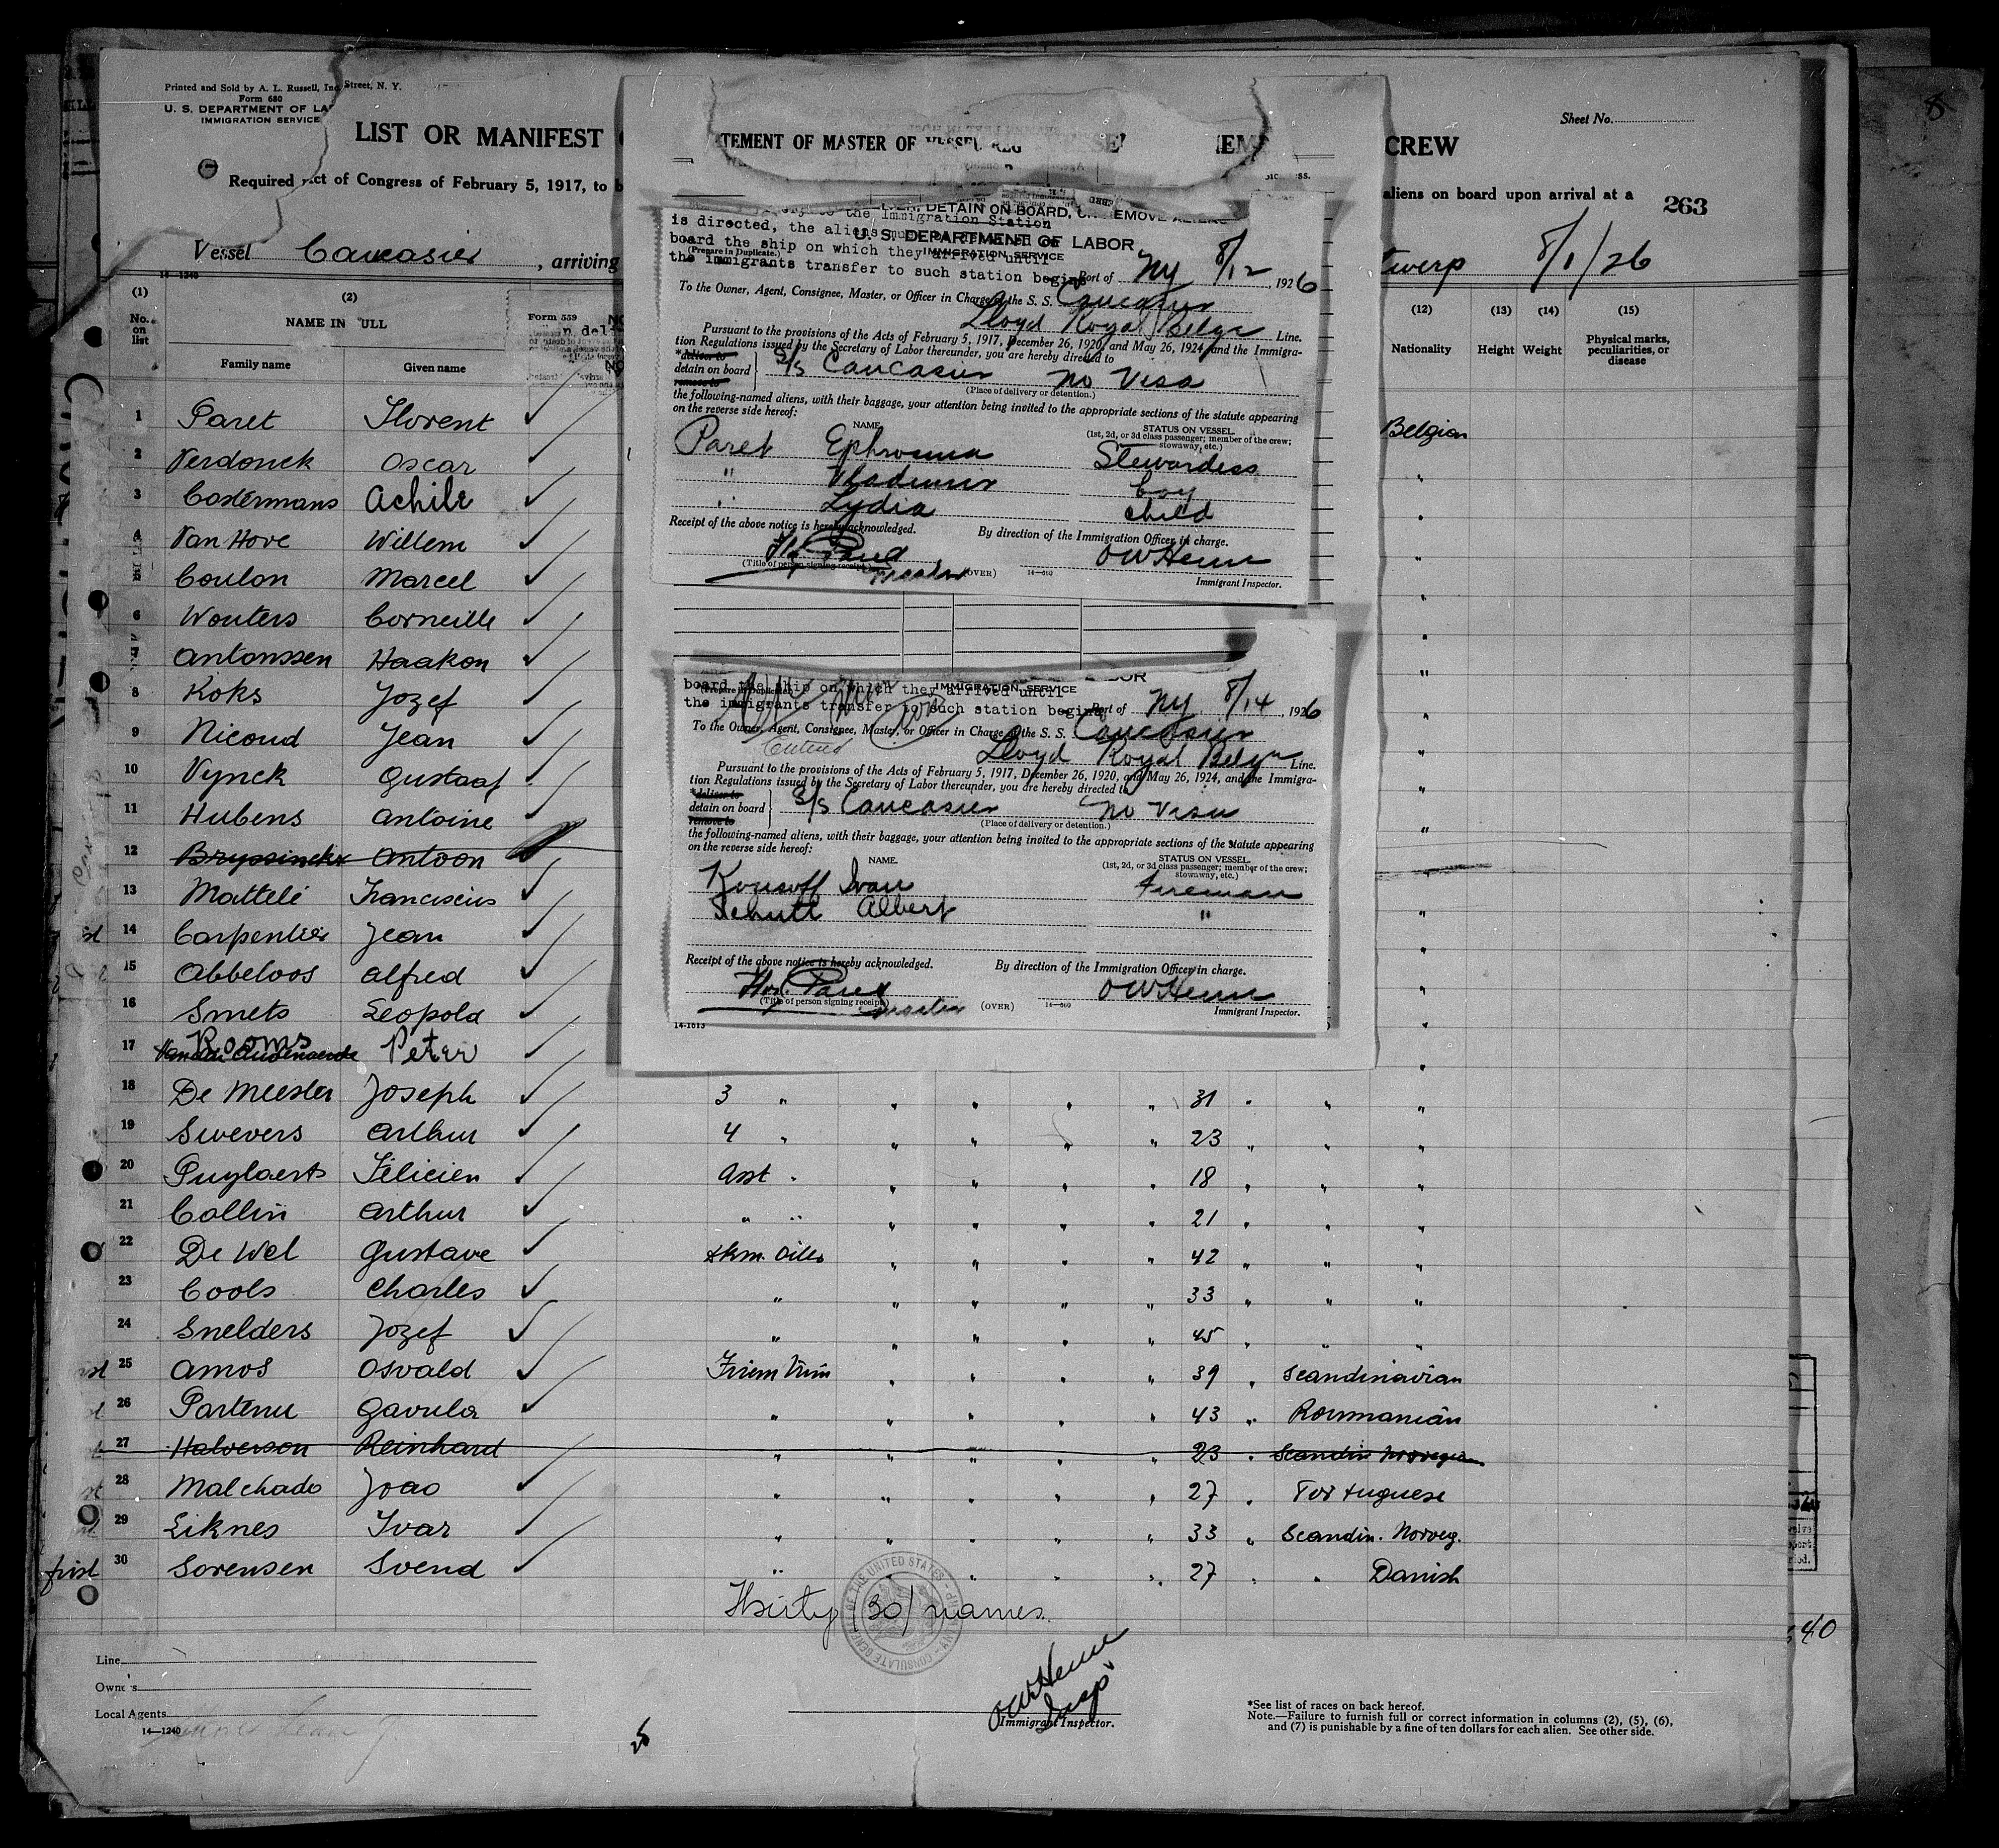 Printed and Sold by A. L. Russell, Inc. Street, N. Y.
Form 680
U. S. DEPARTMENT OF LA
IMMIGRATION SERVICE
Sheet No.
LIST OR MANIFEST
CREW
Required Act of Congress of February 5, 1917, to b
aliens on board upon arrival at a
263
Vessel Caucasier, arriving
twerp 8/1/26
14—1240
(1) (2) (12) (13) (14) (15)
No. on list
NAME IN ULL
Family name Given name
Form 559
Nationality Height Weight Physical marks, peculiarities, or disease
1 Paret Florent Belgian
2 Verdonck Oscar "
3 Costermans Achile "
4 Van Hove Willem "
5 Coulon Marcel "
6 Wouters Corneille "
7 Antonssen Haakon "
8 Koks Jozef "
9 Nicoud Jean "
10 Vynck Gustaaf "
11 Hubens Antoine "
12 Bryssinckx Antoon
13 Mattelé Franciscus "
14 Carpentier Jean "
15 Abbeloos Alfred "
16 Smets Leopold "
17 Rooms Peter "
18 De Meester Joseph 3 " " " " " 31 " " "
19 Swevers Arthur 4 " " " " " 23 " " "
20 Puylaert Félicien Asst " " " " " 18 " " "
21 Collin Arthur " " " " " " 21 " " "
22 De Wel Gustave " " " " 42 " " "
23 Cools Charles " " " " " 33 " " "
24 Snelders Jozef " " " " " 45 " " "
25 Amos Osvald " " " " 39 " Scandinavian
26 Partenu Gavula " " " " " 43 " Roumanian
27 Halverson Reinhard " " " " " 23 " Scandin Norvegian
28 Malchado Joao " " " " " 27 " Portuguese
29 Liknes Ivar " " " " " 33 " Scandin. Norveg.
first 30 Sorensen Svend " " " " " 27 " " Danish
Thirty (30) names.
CONSULATE GENERAL OF THE UNITED STATES
Line
Owners
Local Agents
14—1240
OWHenn
Insp
Immigrant Inspector.
*See list of races on back hereof.
Note.—Failure to furnish full or correct information in columns (2), (5), (6),
and (7) is punishable by a fine of ten dollars for each alien. See other side.
40
TEMENT OF MASTER OF VESSEL REG
DETAIN ON BOARD, OR REMOVE ALIENS
to the Immigration Station
is directed, the aliens
U. S. DEPARTMENT OF LABOR
board the ship on which they arrived until
(Prepare in Duplicate.)
IMMIGRATION SERVICE
the immigrants transfer to such station begins
Port of NY 8/12, 1926
To the Owner, Agent, Consignee, Master, or Officer in Charge of the S. S. Caucasier
Lloyd Royal Belge Line.
Pursuant to the provisions of the Acts of February 5, 1917, December 26, 1920, and May 26, 1924, and the Immigra-
tion Regulations issued by the Secretary of Labor thereunder, you are hereby directed to
*deliver to
detain on board S/S Caucasier no Visa
remove to
(Place of delivery or detention.)
the following-named aliens, with their baggage, your attention being invited to the appropriate sections of the statute appearing
on the reverse side hereof:
NAME STATUS ON VESSEL
(1st, 2d, or 3d class passenger; member of the crew; stowaway, etc.)
Paret Ephrosina Stewardess
" Vladimir boy
" Lydia child
Receipt of the above notice is hereby acknowledged. By direction of the Immigration Officer in charge.
Fl. Paret OWHenn
(Title of person signing receipt.) Master (OVER) 14—660 Immigrant Inspector.
board the ship on which they arrived until
(Prepare in Duplicate.)
IMMIGRATION SERVICE
the immigrants transfer to such station begins
Port of NY 8/14, 1926
To the Owner, Agent, Consignee, Master, or Officer in Charge of the S. S. Caucasier
Lloyd Royal Belge Line.
Pursuant to the provisions of the Acts of February 5, 1917, December 26, 1920, and May 26, 1924, and the Immigra-
tion Regulations issued by the Secretary of Labor thereunder, you are hereby directed to
*deliver to
detain on board S/S Caucasier no Visa
remove to
(Place of delivery or detention.)
the following-named aliens, with their baggage, your attention being invited to the appropriate sections of the statute appearing
on the reverse side hereof:
NAME STATUS ON VESSEL
(1st, 2d, or 3d class passenger; member of the crew; stowaway, etc.)
Ivan Fireman
Schutt Albert "
Receipt of the above notice is hereby acknowledged. By direction of the Immigration Officer in charge.
Flor. Paret OWHenn
(Title of person signing receipt.) Master (OVER) 14—660 Immigrant Inspector.
14-1613